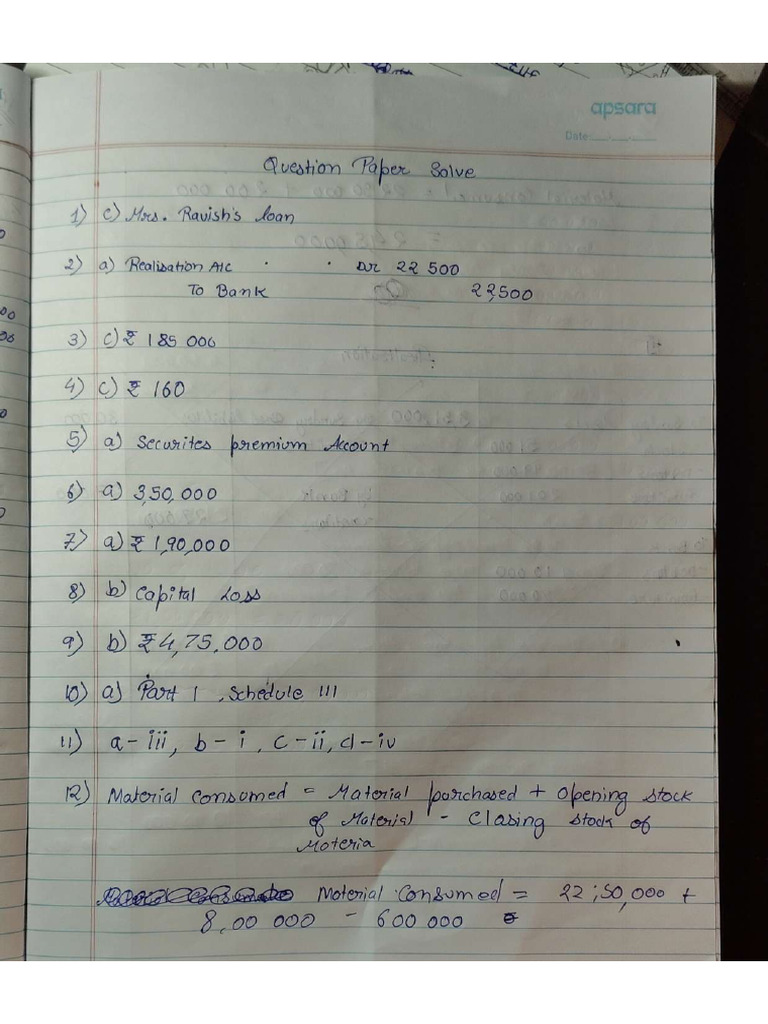 apsara
Date:
Question Paper Solve
1) c) Mrs. Ravish's loan
2) a) Realisation A/c . . Dr 22 500
To Bank 22,500
3) c) ₹ 185 000
4) c) ₹ 160
5) a) Securites premium Account
6) a) 3,50,000
7) a) ₹ 1,90,000
8) b) Capital Loss
9) b) ₹ 4,75,000
10) a) Part 1, Schedule 111
11) a - iii, b - i, c - ii, d - iv
12) Material Consumed = Material purchased + Opening stock
of Material - Clasing stock of
Materia
Material Consumed = 22,50,000 +
8,00 000 - 600 000